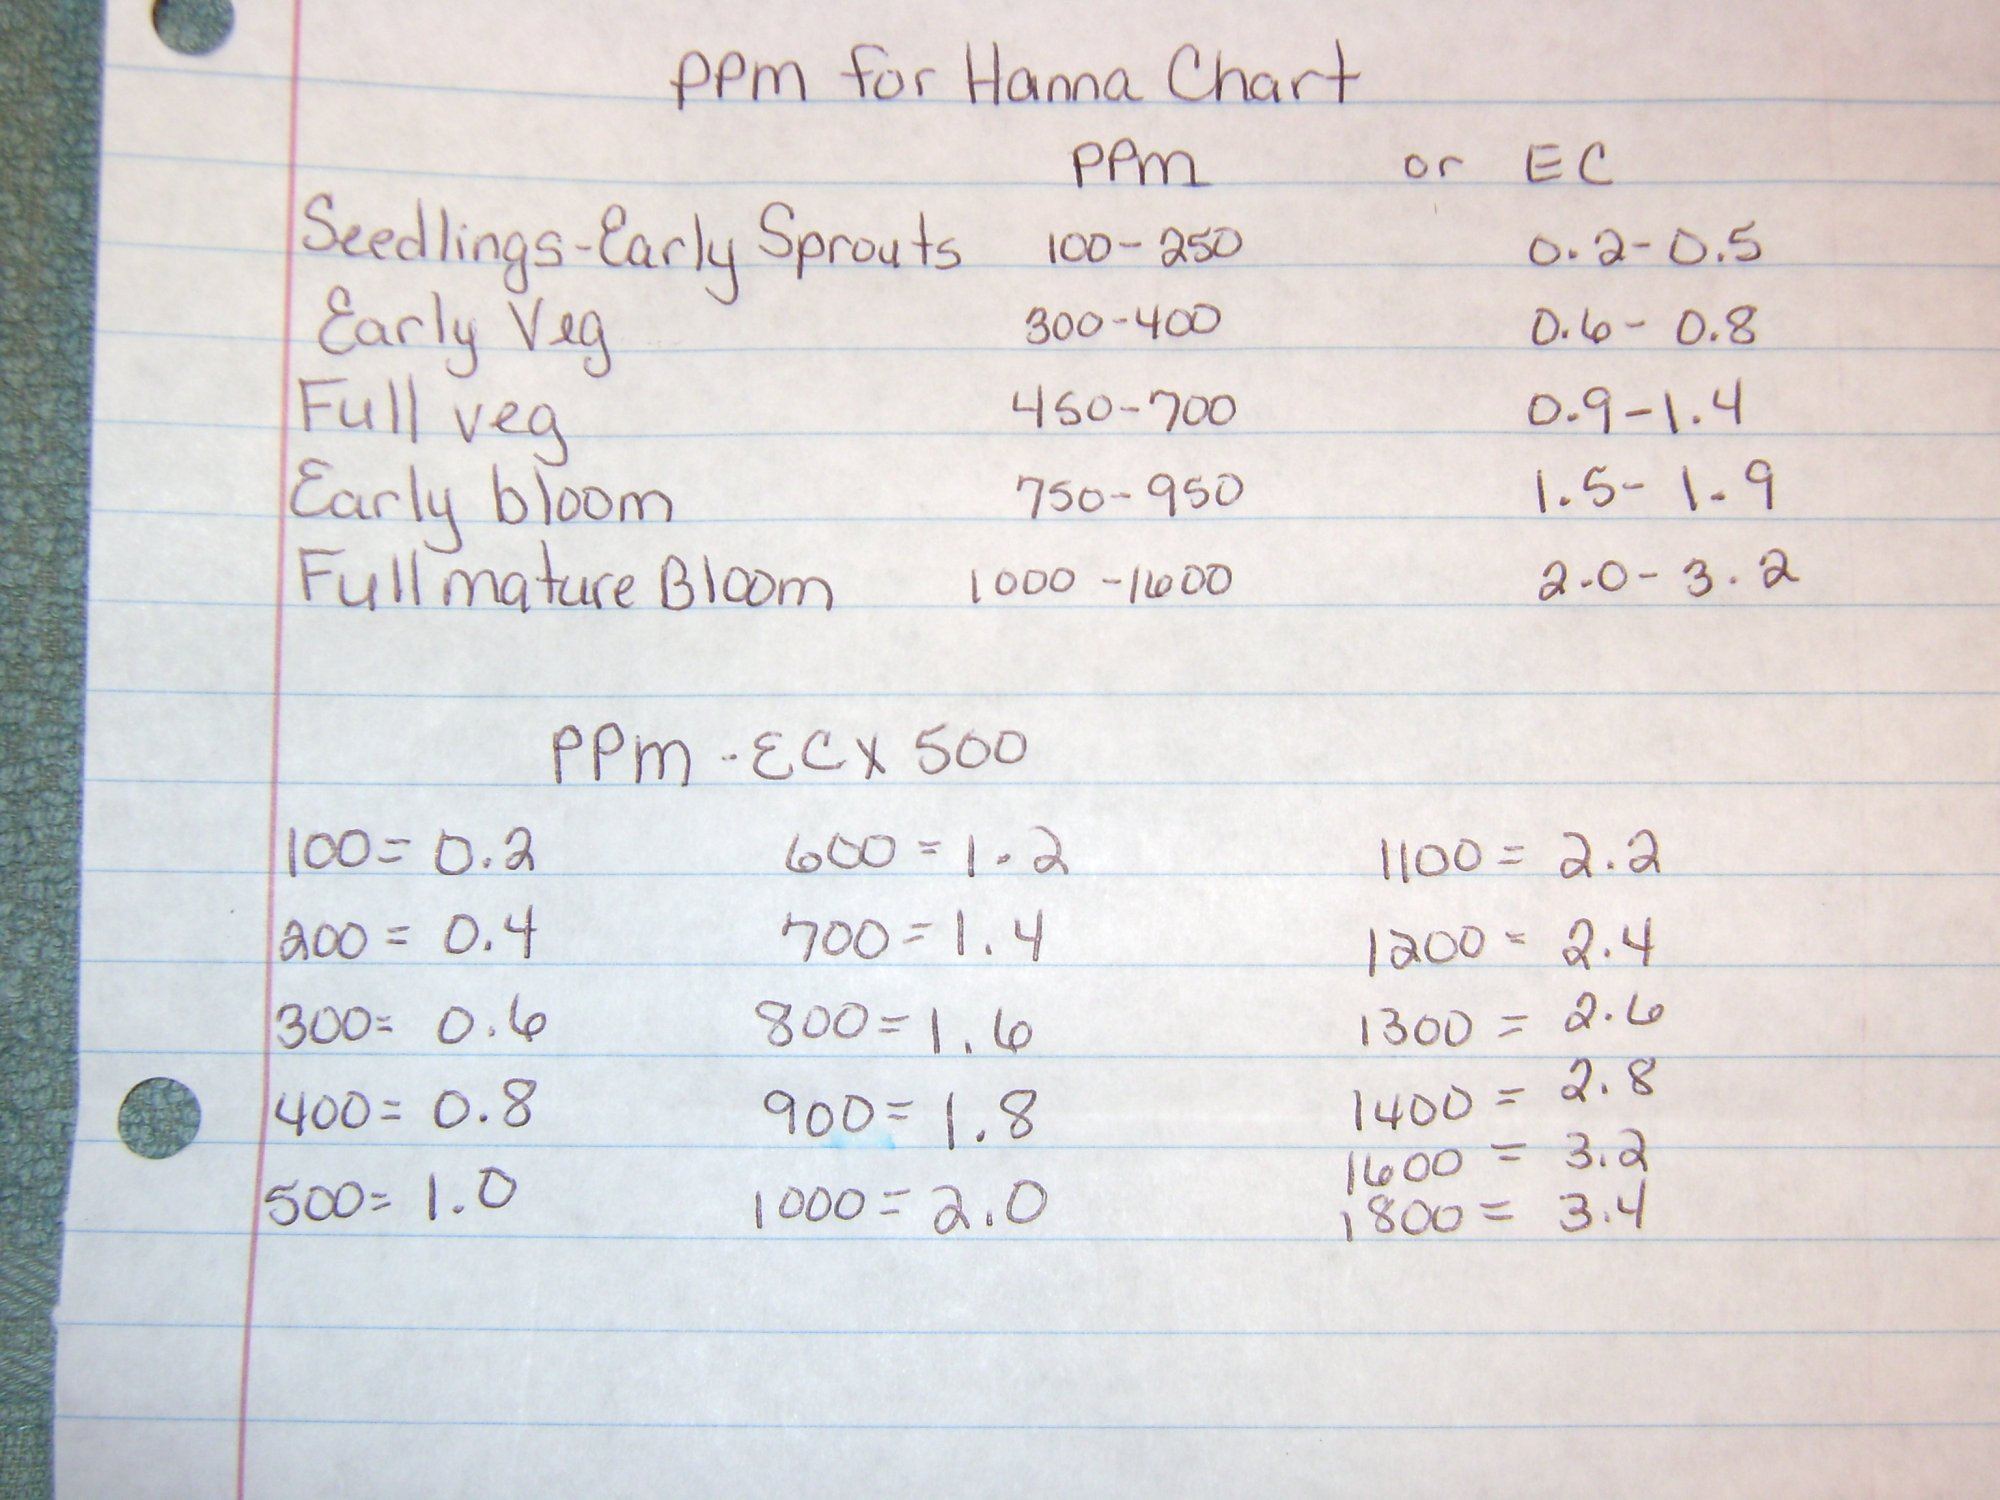 PPm for Hanna Chart
PPm or EC
Seedlings-Early Sprouts 100-250 0.2-0.5
Early Veg 300-400 0.6-0.8
Full veg 450-700 0.9-1.4
Early bloom 750-950 1.5-1.9
Full mature Bloom 1000-1600 2.0-3.2
PPm - EC x 500
100= 0.2 600=1.2 1100= 2.2
200= 0.4 700=1.4 1200= 2.4
300= 0.6 800=1.6 1300= 2.6
400= 0.8 900=1.8 1400= 2.8
1600= 3.2
500= 1.0 1000=2.0 1800= 3.4